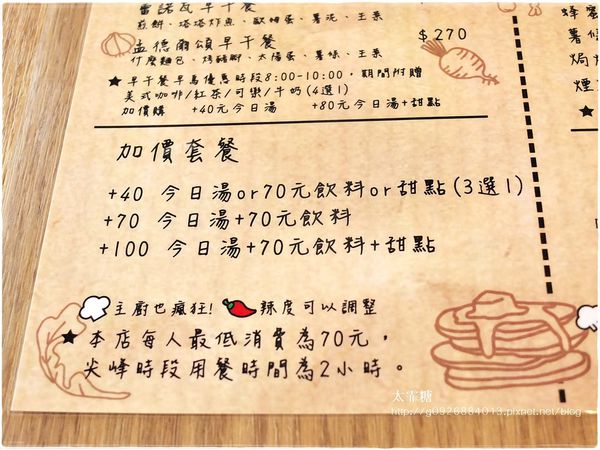 雷諾瓦早午餐
煎餅、塔塔炸魚、歐姆蛋、薯泥、生菜
孟德爾頌早午餐 $270
什麼麵包、烤豬腳、太陽蛋、薯條、生菜
★早午餐早鳥優惠時段8:00-10:00，期間附贈
美式咖啡/紅茶/可樂/牛奶(4選1)
加價購 +40元今日湯 +80元今日湯+甜點
加價套餐
+40 今日湯or70元飲料or甜點(3選1)
+70 今日湯+70元飲料
+100 今日湯+70元飲料+甜點
主廚也瘋狂! 辣度可以調整
★本店每人最低消費為70元，
尖峰時段用餐時間為2小時。
蜂蜜
薯條
焗
煙
★
太霏糖
http://g0926884013.pixnet.net/blog